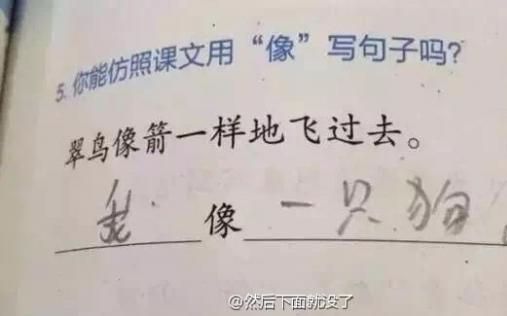 5.你能仿照课文用“像”写句子吗?
翠鸟像箭一样地飞过去。
像一只狗
@然后下面就没了